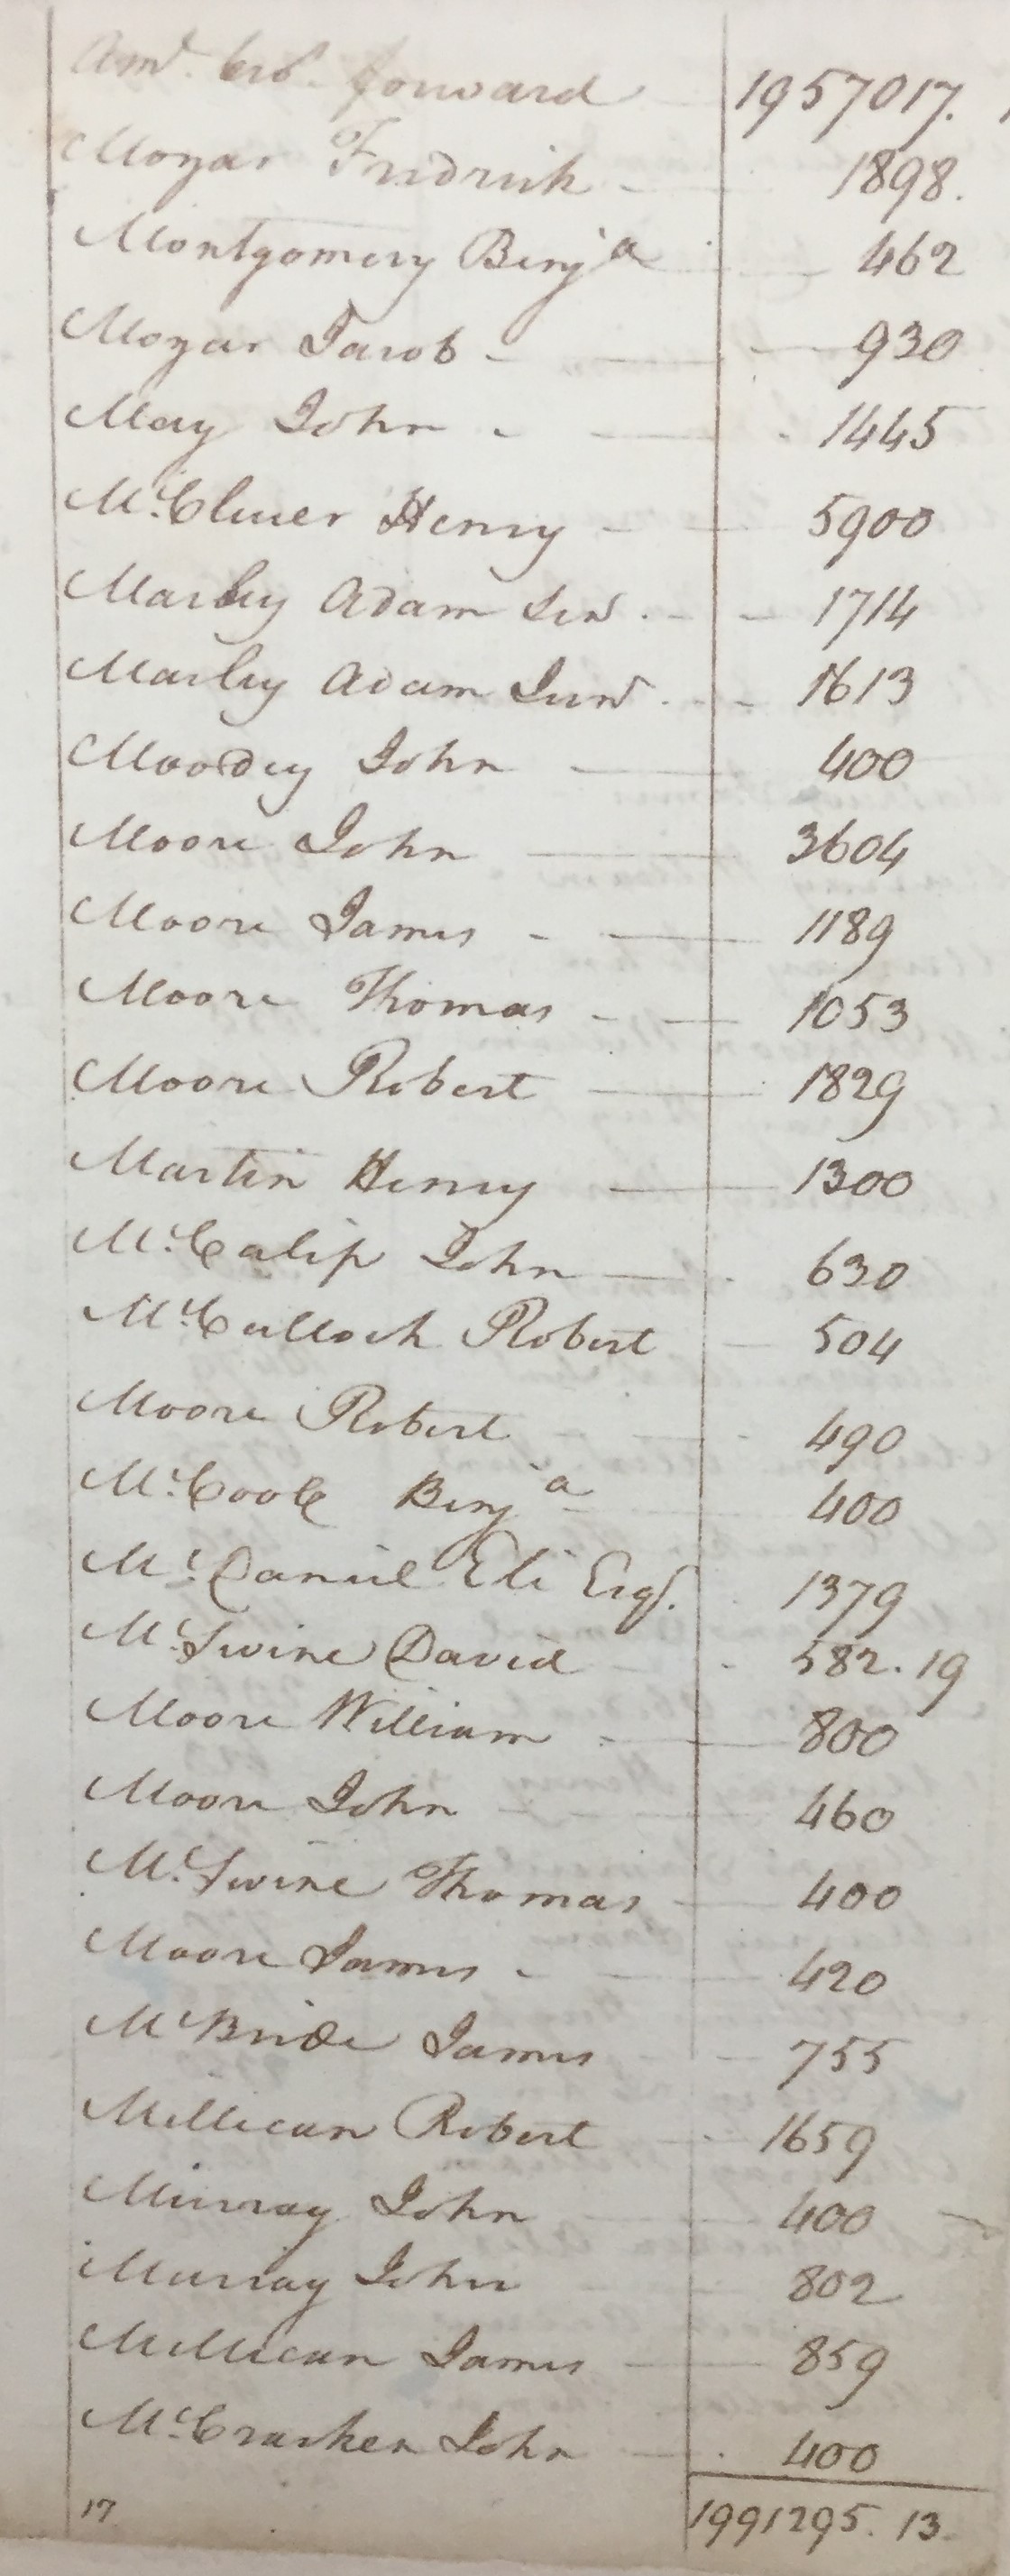 Amt. bro. forward 1957017.
Moyar Fredrick 1898.
Montgomery Benja 462
Moyar Jacob 930
May John 1445
McCluer Henry 5900
Marley Adam Senr. 1714
Marley Adam Junr. 1613
Moodey John 400
Moore John 3604
Moore James 1189
Moore Thomas 1053
Moore Robert 1829
Martin Henry 1300
McCalip John 630
McCulloch Robert 504
Moore Robert 490
McCoole Benja 400
McDaniel Eli Esqr. 1379
McSwine David 582.19
Moore William 800
Moore John 460
McSwine Thomas 400
Moore James 420
McBride James 755
Millican Robert 1659
Murray John 400
Murray John 802
Millican James 859
McCracken John 400
17 1991295.13